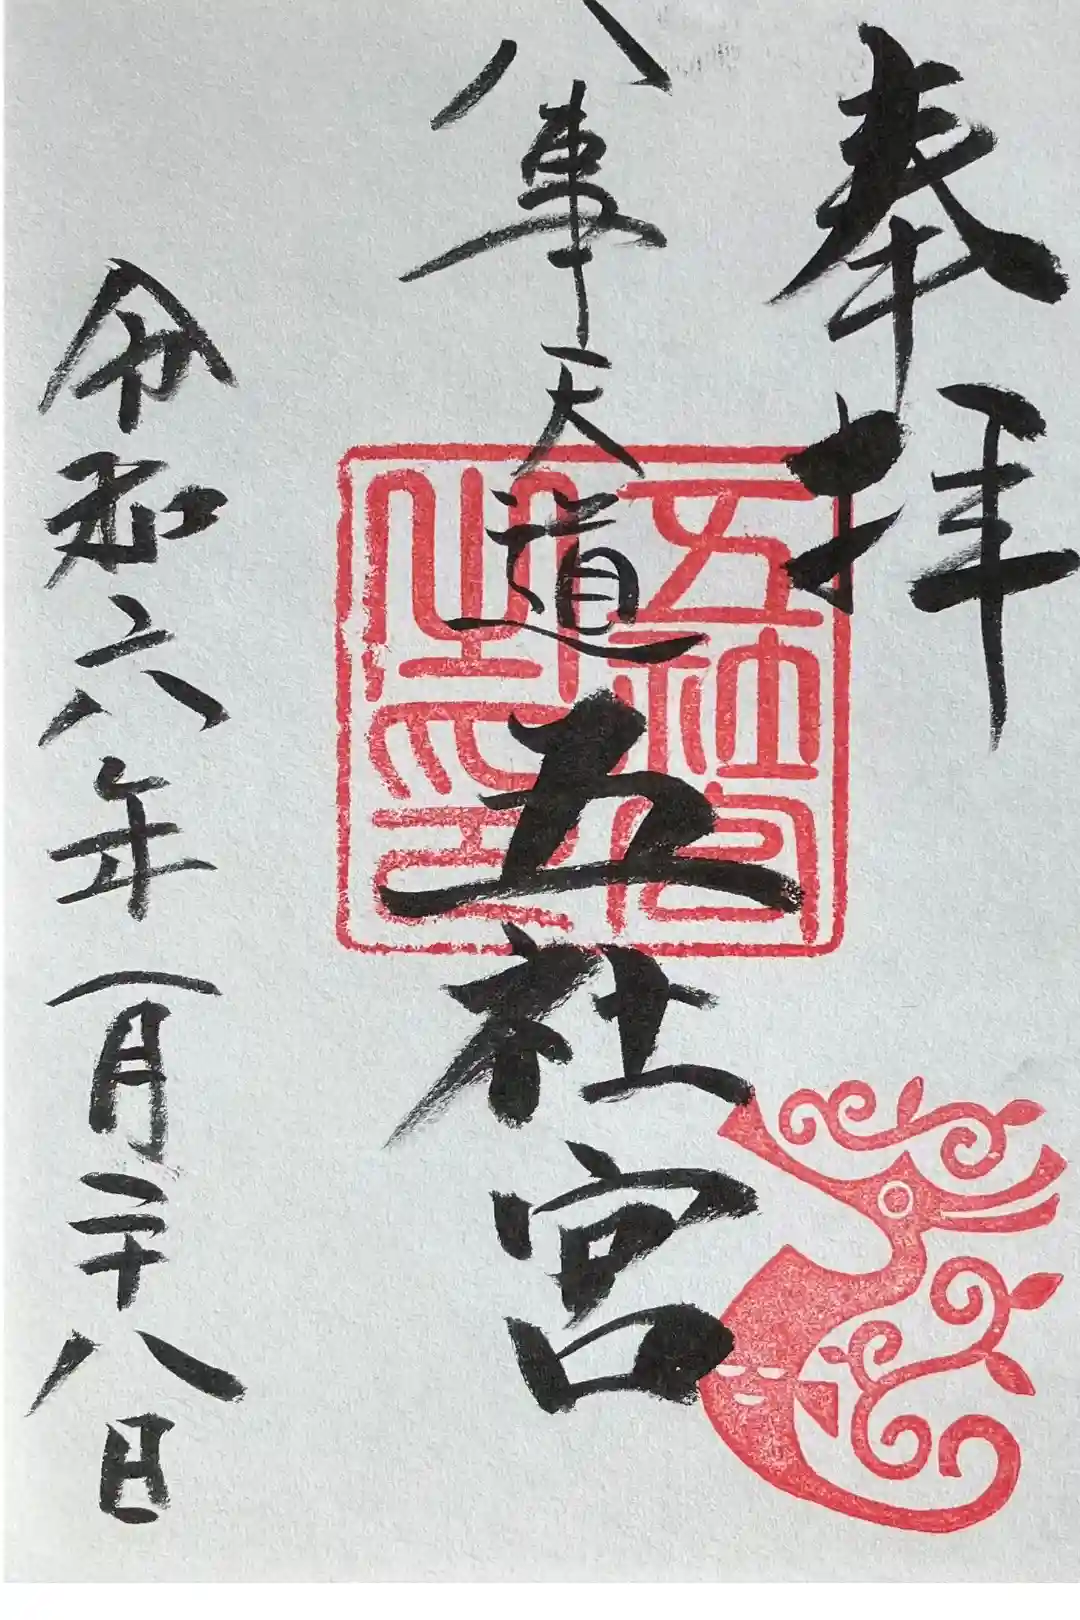 奉拝
八事天道五社宮
五社宮之印
令和六年一月二十八日